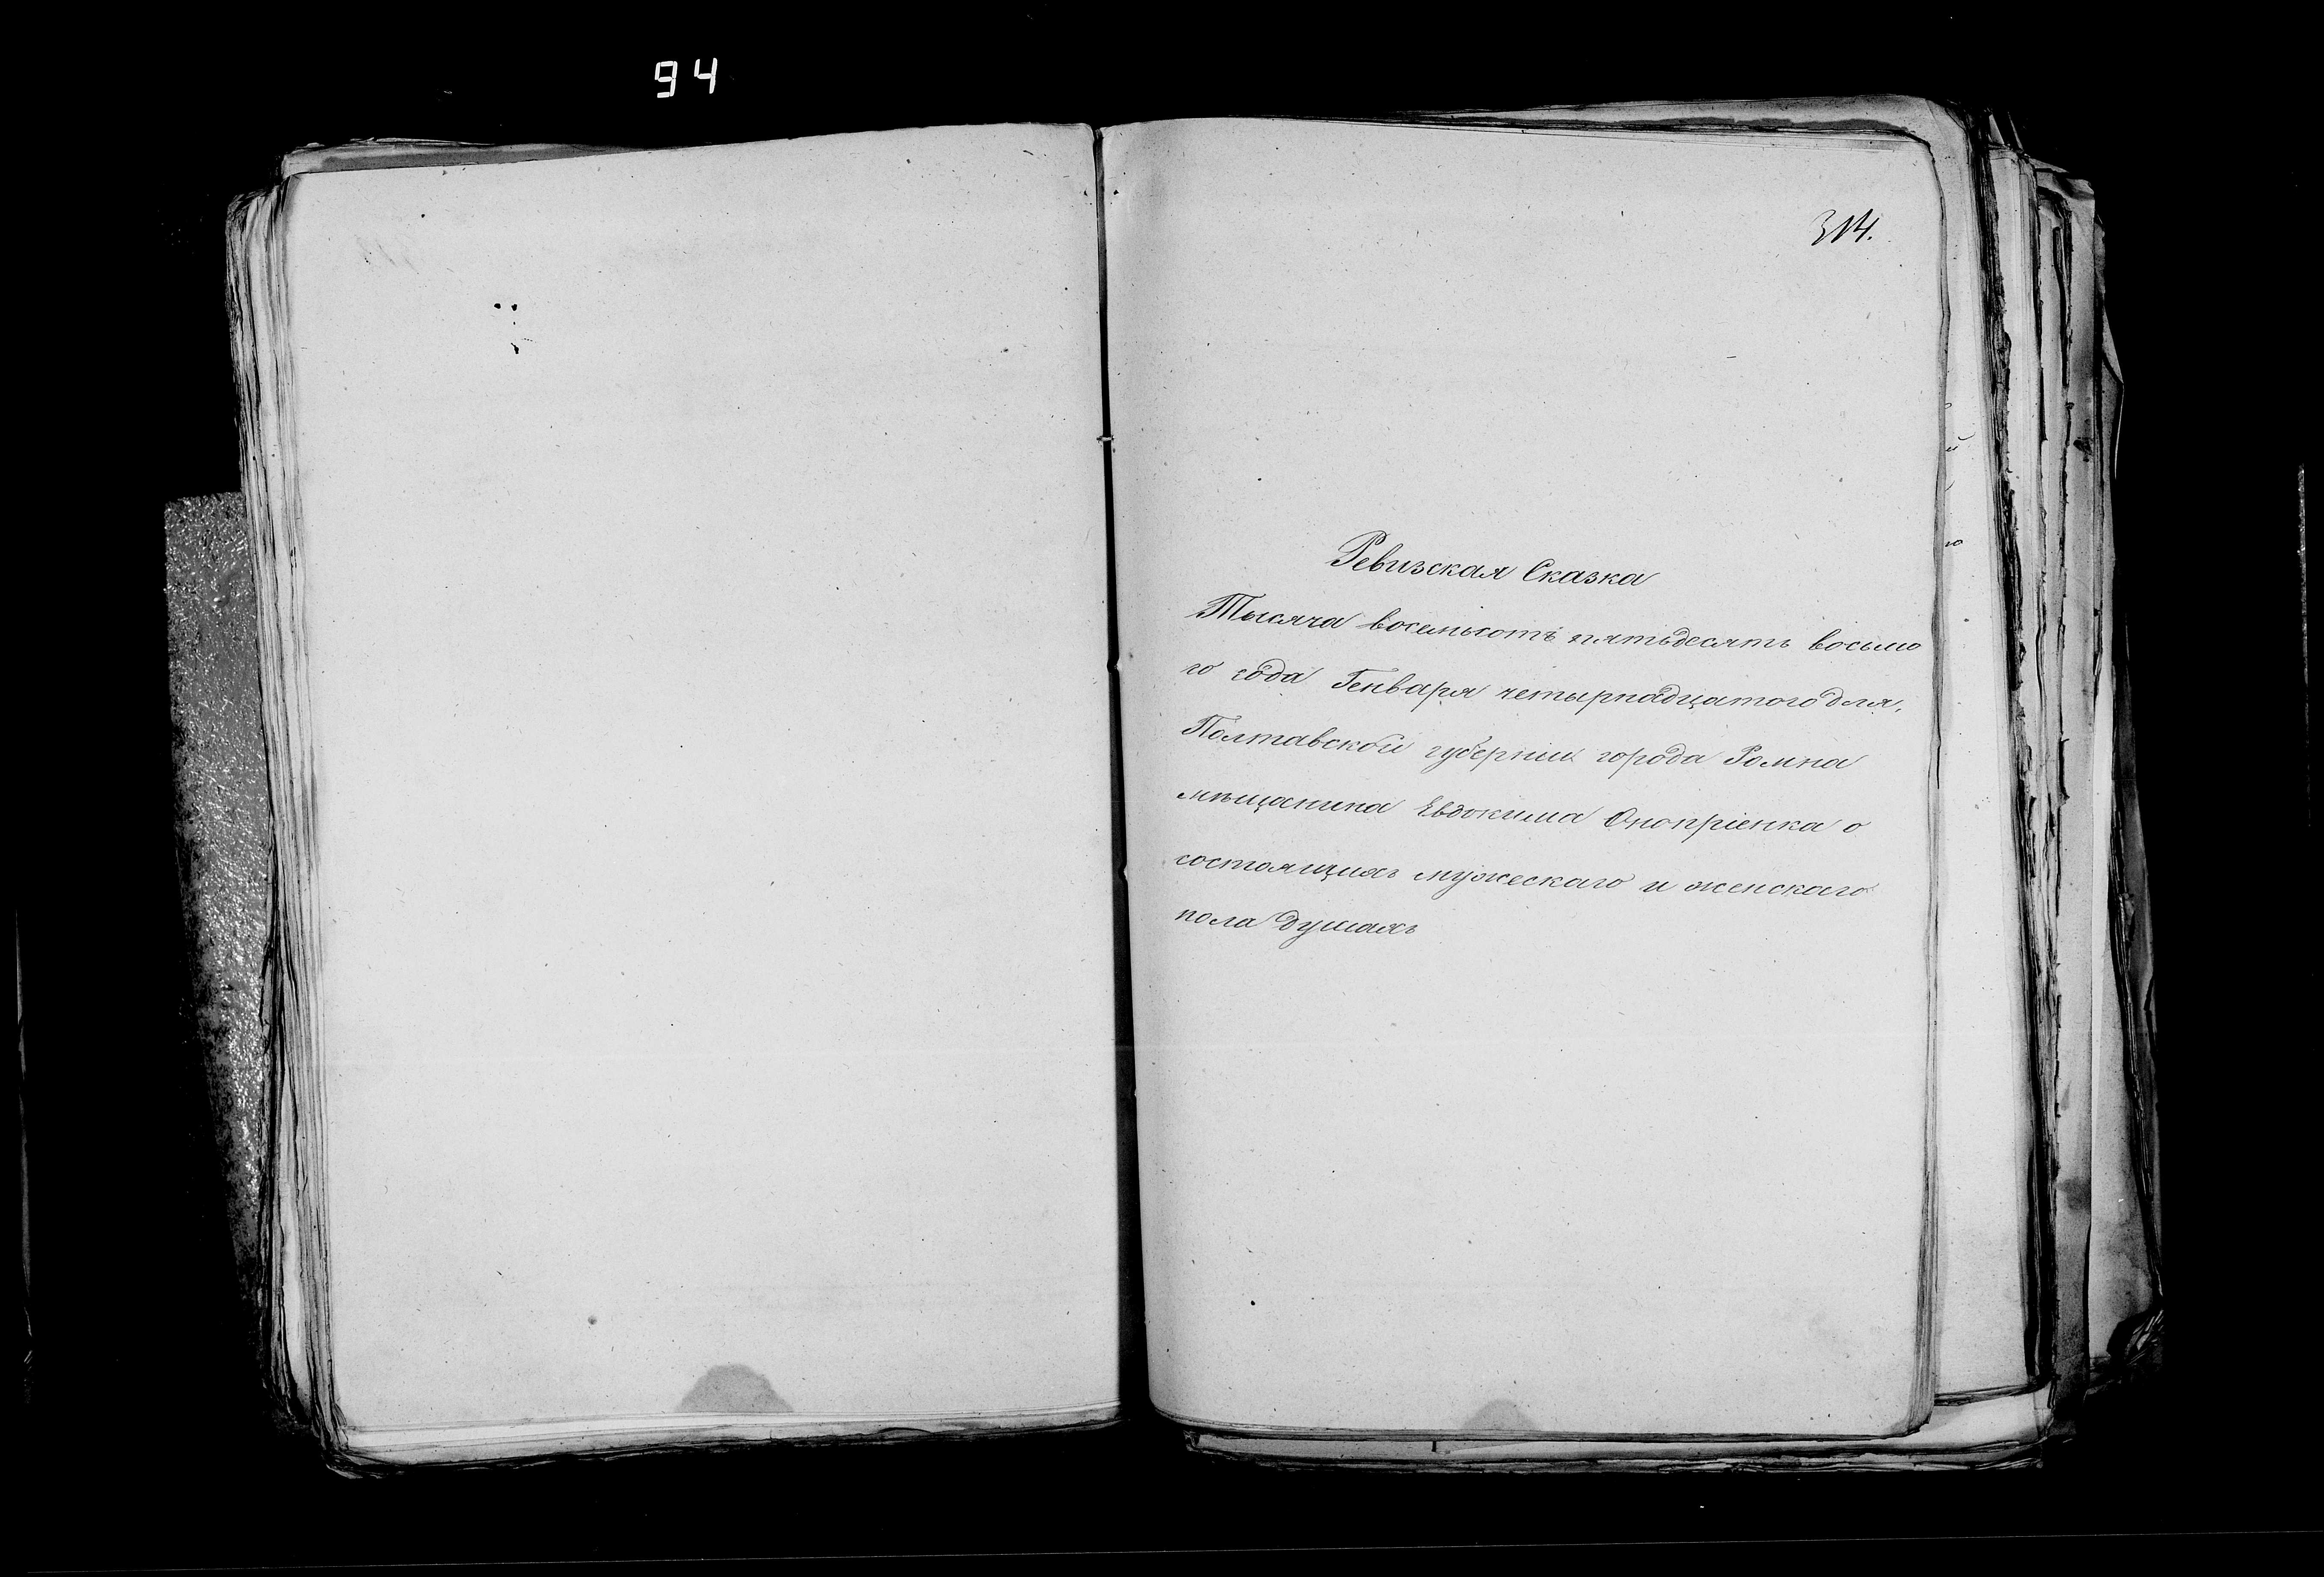 94
314.
Ревизская Сказка
Тысяча восемьсотъ пятьдесятъ восьмо
го года Генваря четырнадцатого дня,
Полтавской губернии города Ромна
мѣщанина Евдокима Оноприенка о
состоящихъ мужескаго и женскаго
пола душахъ